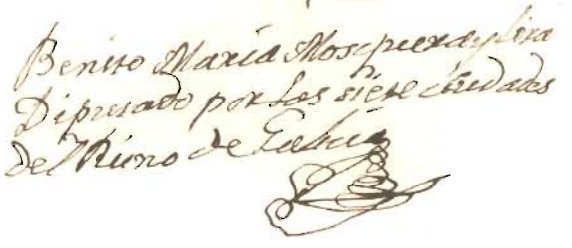 Benito María Mosquera y Lira
Diputado por las siete ciudades
del Reino de Galicia